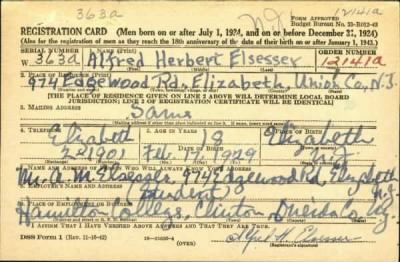 363a N.J. 12141a
FORM APPROVED
Budget Bureau No.
REGISTRATION CARD (Men born on or after July 1, 1924, and on or before December 31, 1924)
(Also for the registration of men as they reach the 18th anniversary of the date of their birth on or after January 1, 1943.)
SERIAL NUMBER 1. NAME (Print) ORDER NUMBER
W 363a Alfred Herbert Elsesser 12141a
2. PLACE OF RESIDENCE (Print)
974 Edgewood Rd, Elizabeth, Union Co, N.J.
[THE PLACE OF RESIDENCE GIVEN ON LINE 2 ABOVE WILL DETERMINE LOCAL BOARD
JURISDICTION; LINE 2 OF REGISTRATION CERTIFICATE WILL BE IDENTICAL]
3. MAILING ADDRESS
Same
4. TELEPHONE 5. AGE IN YEARS 6. PLACE OF BIRTH
Elizabeth 18 Elizabeth
DATE OF BIRTH
N.J.
7. NAME AND ADDRESS OF PERSON WHO WILL ALWAYS KNOW YOUR ADDRESS
Elsesser, 974 Edgewood Rd, Elizabeth
N.J.
8. EMPLOYER'S NAME AND ADDRESS
Student
9. PLACE OF EMPLOYMENT OR BUSINESS
Hamilton College, Clinton, Oneida Co, N.Y.
I AFFIRM THAT I HAVE VERIFIED ABOVE ANSWERS AND THAT THEY ARE TRUE.
DSS Form 1 (Rev. 11-16-42) Alfred H. Elsesser